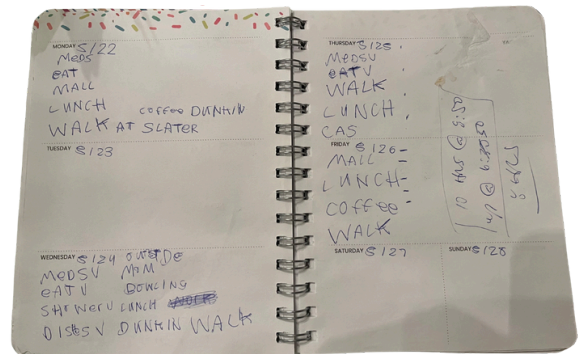 MONDAY 5/22
MEDS
EAT
MALL
LUNCH COFFEE DUNKIN
WALK AT SLATER
TUESDAY 5/23
WEDNESDAY 5/24
MEDSV MOM
EATV BOWLING
SHOWERV LUNCH
DUNKIN WALK
THURSDAY 5/25
MEDSV
EATV
WALK
LUNCH
CAS
FRIDAY 5/26
MALL
LUNCH
COFFEE
WALK
SATURDAY 5/27 SUNDAY 5/28